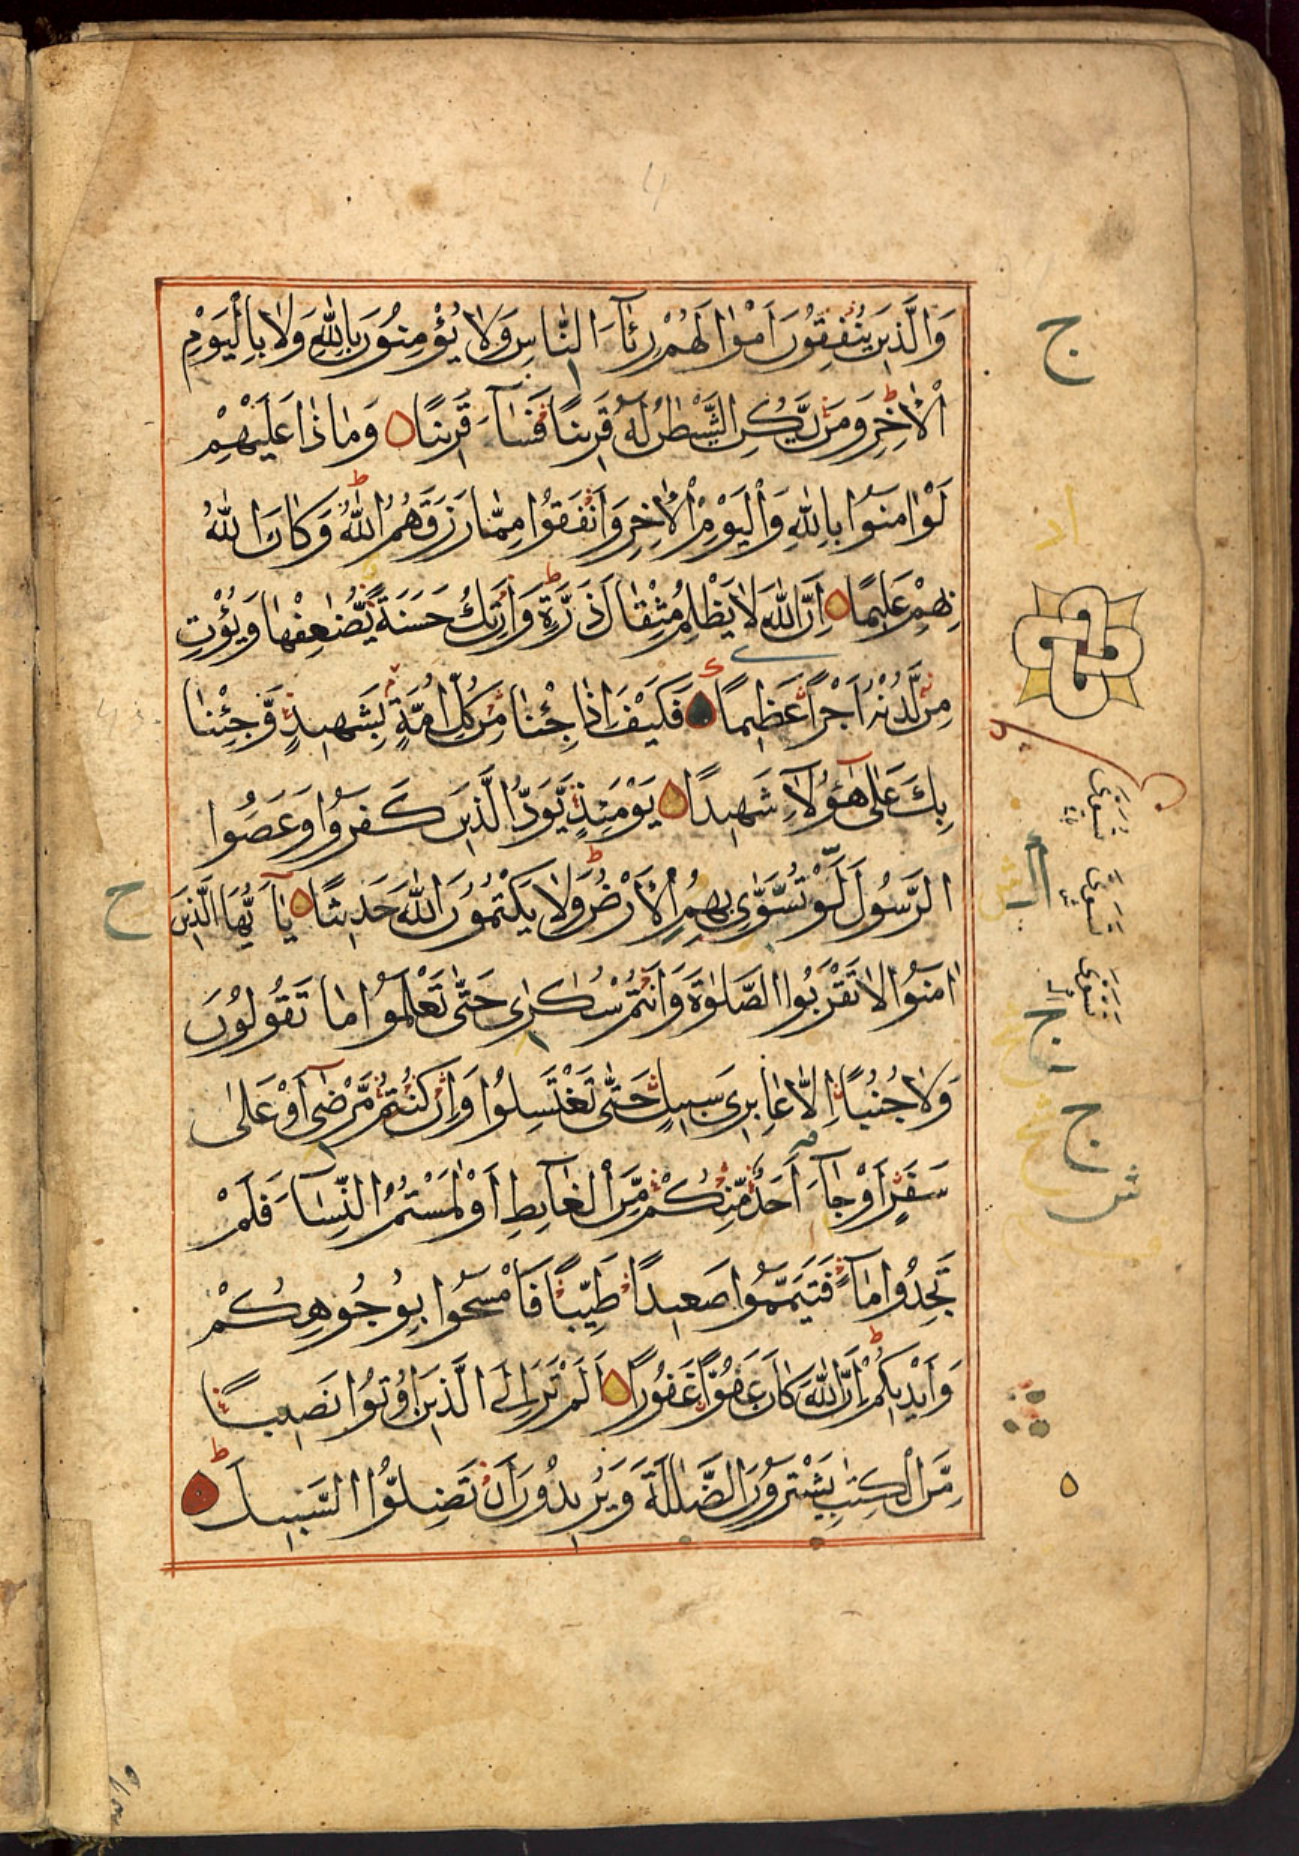 وَالَّذِينَ يُنْفِقُونَ اَمْوَالَهُمْ رِئَآءَ النَّاسِ وَلَا يُؤْمِنُونَ بِاللّٰهِ وَلَا بِالْيَوْمِ
الْاٰخِرِ وَمَنْ يَّكُنِ الشَّيْطٰنُ لَهُ قَرِينًا فَسَآءَ قَرِينًا وَمَاذَا عَلَيْهِمْ
لَوْ اٰمَنُوا بِاللّٰهِ وَالْيَوْمِ الْاٰخِرِ وَاَنْفَقُوا مِمَّا رَزَقَهُمُ اللّٰهُ وَكَانَ اللّٰهُ
بِهِمْ عَلِيمًا اِنَّ اللّٰهَ لَا يَظْلِمُ مِثْقَالَ ذَرَّةٍ وَاِنْ تَكُ حَسَنَةً يُّضٰعِفْهَا وَيُؤْتِ
مِنْ لَّدُنْهُ اَجْرًا عَظِيمًا فَكَيْفَ اِذَا جِئْنَا مِنْ كُلِّ اُمَّةٍ بِشَهِيدٍ وَّجِئْنَا
بِكَ عَلٰى هٰٓؤُلَآءِ شَهِيدًا يَوْمَئِذٍ يَّوَدُّ الَّذِينَ كَفَرُوا وَعَصَوُا
الرَّسُولَ لَوْ تُسَوّٰى بِهِمُ الْاَرْضُ وَلَا يَكْتُمُونَ اللّٰهَ حَدِيثًا يَآ اَيُّهَا الَّذِينَ
اٰمَنُوا لَا تَقْرَبُوا الصَّلٰوةَ وَاَنْتُمْ سُكَارٰى حَتّٰى تَعْلَمُوا مَا تَقُولُونَ
وَلَا جُنُبًا اِلَّا عَابِرِى سَبِيلٍ حَتّٰى تَغْتَسِلُوا وَاِنْ كُنْتُمْ مَّرْضٰٓى اَوْ عَلٰى
سَفَرٍ اَوْ جَآءَ اَحَدٌ مِّنْكُمْ مِّنَ الْغَآئِطِ اَوْ لٰمَسْتُمُ النِّسَآءَ فَلَمْ
تَجِدُوا مَآءً فَتَيَمَّمُوا صَعِيدًا طَيِّبًا فَامْسَحُوا بِوُجُوهِكُمْ
وَاَيْدِيكُمْ اِنَّ اللّٰهَ كَانَ عَفُوًّا غَفُورًا اَلَمْ تَرَ اِلَى الَّذِينَ اُوتُوا نَصِيبًا
مِّنَ الْكِتٰبِ يَشْتَرُونَ الضَّلٰلَةَ وَيُرِيدُونَ اَنْ تَضِلُّوا السَّبِيلَ
ج
ح
تُسَوّٰى
تَسَّوّٰى
تَسَوّٰى
ج
ج
ش